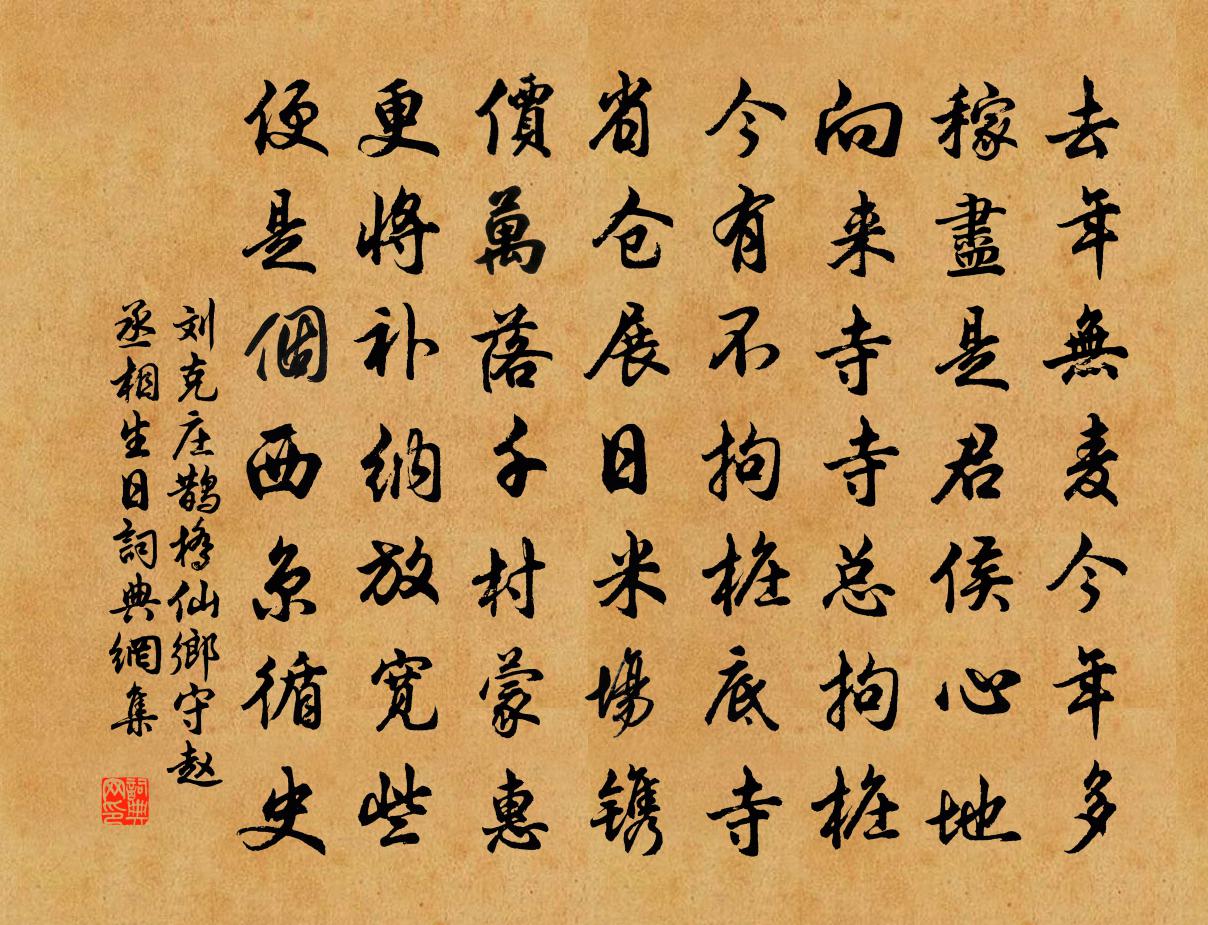 去年無麦今年多
稼盡是君侯心地
向来寺寺总拘榷
今有不拘榷底寺
省仓展日米場镌
價萬落千村蒙惠
更将补纳放宽些
便是個西京循史
刘克庄鹊橋仙鄉守赵
丞相生日詞典網集
詞典
网印